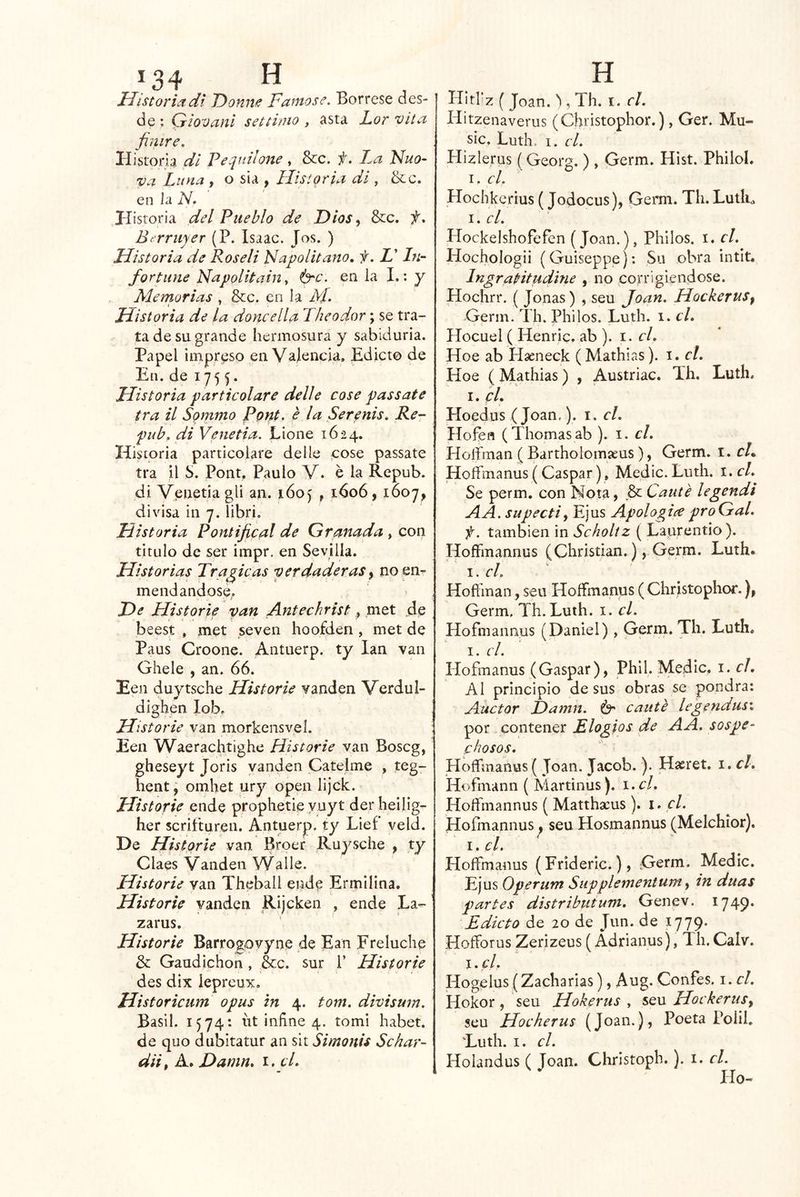 134 H
Historia di Donne Famose. Borrese des-
de : Giovani settimo , asta Lor vita
finire.
Historia di Pequilone , &c. ꝟ. La Nuo-
va Luna , o sia , Historia di , &c.
en la N.
Historia del Pueblo de Dios, &c. ꝟ.
Berruyer (P. Isaac. Jos. )
Historia de Roseli Napolitano. ꝟ. L' In-
fortune Napolitain, &c. en la I.: y
Memorias , &c. en la M.
Historia de la doncella Theodor ; se tra-
ta de su grande hermosura y sabiduria.
Papel impreso en Valencia. Edicto de
En. de 1755.
Historia particolare delle cose passate
tra il Sommo Pont. è la Serenis. Re-
pub. di Venetia. Lione 1624.
Historia particolare delle cose passate
tra il S. Pont. Paulo V. è la Repub.
di Venetia gli an. 1605 , 1606 , 1607,
divisa in 7. libri.
Historia Pontifical de Granada , con
titulo de ser impr. en Sevilla.
Historias Tragicas verdaderas, no en-
mendandose.
De Historie van Antechrist , met de
beest , met seven hoofden , met de
Paus Croone. Antuerp. ty Ian van
Ghele , an. 66.
Een duytsche Historie vanden Verdul-
dighen Iob.
Historie van morkensvel.
Een Waerachtighe Historie van Boscg,
gheseyt Joris vanden Catelme , teg-
hent , omhet ury open lijck.
Historie ende prophetie vuyt der heilig-
her scrifturen. Antuerp. ty Lief veld.
De Historie van Broer Ruysche , ty
Claes Vanden Walle.
Historie van Theball ende Ermilina.
Historie vanden Rijcken , ende La-
zarus.
Historie Barrogovyne de Ean Freluche
& Gaudichon , &c. sur l' Historie
des dix lepreux.
Historicum opus in 4. tom. divisum.
Basil. 1574: ùt infine 4. tomi habet.
de quo dubitatur an sit Simonis Schar-
dii, A. Damn. 1. cl.
H
Hitl'z ( Joan. ), Th. 1. cl.
Hitzenaverus (Christophor.) , Ger. Mu-
sic. Luth. 1. cl.
Hizlerus ( Georg. ) , Germ. Hist. Philol.
1. cl.
Hochkerius ( Jodocus), Germ. Th. Luth.
1. cl.
Hockelshofefen ( Joan. ), Philos. 1. cl.
Hochologii (Guiseppe): Su obra intit.
Ingratitudine , no corrigiendose.
Hochrr. ( Jonas ) , seu Joan. Hockerus,
Germ. Th. Philos. Luth. 1. cl.
Hocuel ( Henric. ab ). 1. cl.
Hoe ab Hæneck ( Mathias ). 1. cl.
Hoe ( Mathias ) , Austriac. Th. Luth.
1. cl.
Hoedus ( Joan. ). 1. cl.
Hofen ( Thomas ab ). 1. cl.
Hoffman ( Bartholomæus ), Germ. 1. cl.
Hoffmanus ( Caspar ), Medic. Luth. 1. cl.
Se perm. con Nota, & Cautè legendi
AA. supecti, Ejus Apologiæ pro Gal.
ꝟ. tambien in Scholtz ( Laurentio ).
Hoffmannus (Christian. ) , Germ. Luth.
1. cl.
Hoffman , seu Hoffmanus ( Christophor. ),
Germ. Th. Luth. 1. cl.
Hofmannus (Daniel) , Germ. Th. Luth.
1. cl.
Hofmanus (Gaspar), Phil. Medic. 1. cl.
Al principio de sus obras se pondra:
Auctor Damn. & cautè legendus:
por contener Elogios de AA. sospe-
chosos.
Hoffmanus ( Joan. Jacob. ). Hæret. 1. cl.
Hofmann ( Martinus ). 1. cl.
Hoffmannus ( Matthæus ). 1. cl.
Hofmannus , seu Hosmannus (Melchior).
1. cl.
Hoffmanus ( Frideric. ) , Germ. Medic.
Ejus Operum Supplementum, in duas
partes distributum. Genev. 1749.
Edicto de 20 de Jun. de 1779.
Hofforus Zerizeus ( Adrianus), Th. Calv.
1. cl.
Hogelus ( Zacharias ) , Aug. Confes. 1. cl.
Hokor , seu Hokerus , seu Hockerus,
seu Hocherus (Joan.), Poeta Polil.
Luth. 1. cl.
Holandus ( Joan. Christoph. ). 1. cl.
Ho-